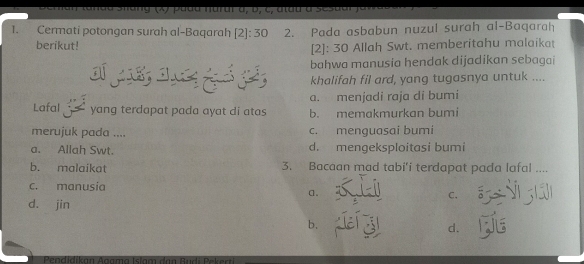 1. Cermati potongan surah al-Baqarah [2]: 30
berikut!
وَنَحْنُ نُسَبِّحُ بِحَمْدِكَ وَنُقَدِّسُ لَكَ
Lafal نَحْنُ yang terdapat pada ayat di atas
merujuk pada ....
a. Allah Swt.
b. malaikat
c. manusia
d. jin
2. Pada asbabun nuzul surah al-Baqarah
[2]: 30 Allah Swt. memberitahu malaikat
bahwa manusia hendak dijadikan sebagai
khalifah fil ard, yang tugasnya untuk ....
a. menjadi raja di bumi
b. memakmurkan bumi
c. menguasai bumi
d. mengeksploitasi bumi
3. Bacaan mad tabi'i terdapat pada lafal ....
a. لِلْمَلٰۤىِٕكَةِ
b. اِنِّيْٓ اَعْلَمُ
c. الدَّارُ الْاٰخِرَةُ
d. قَالُوْا
Pendidikan Agama Islam dan Budi Pekerti